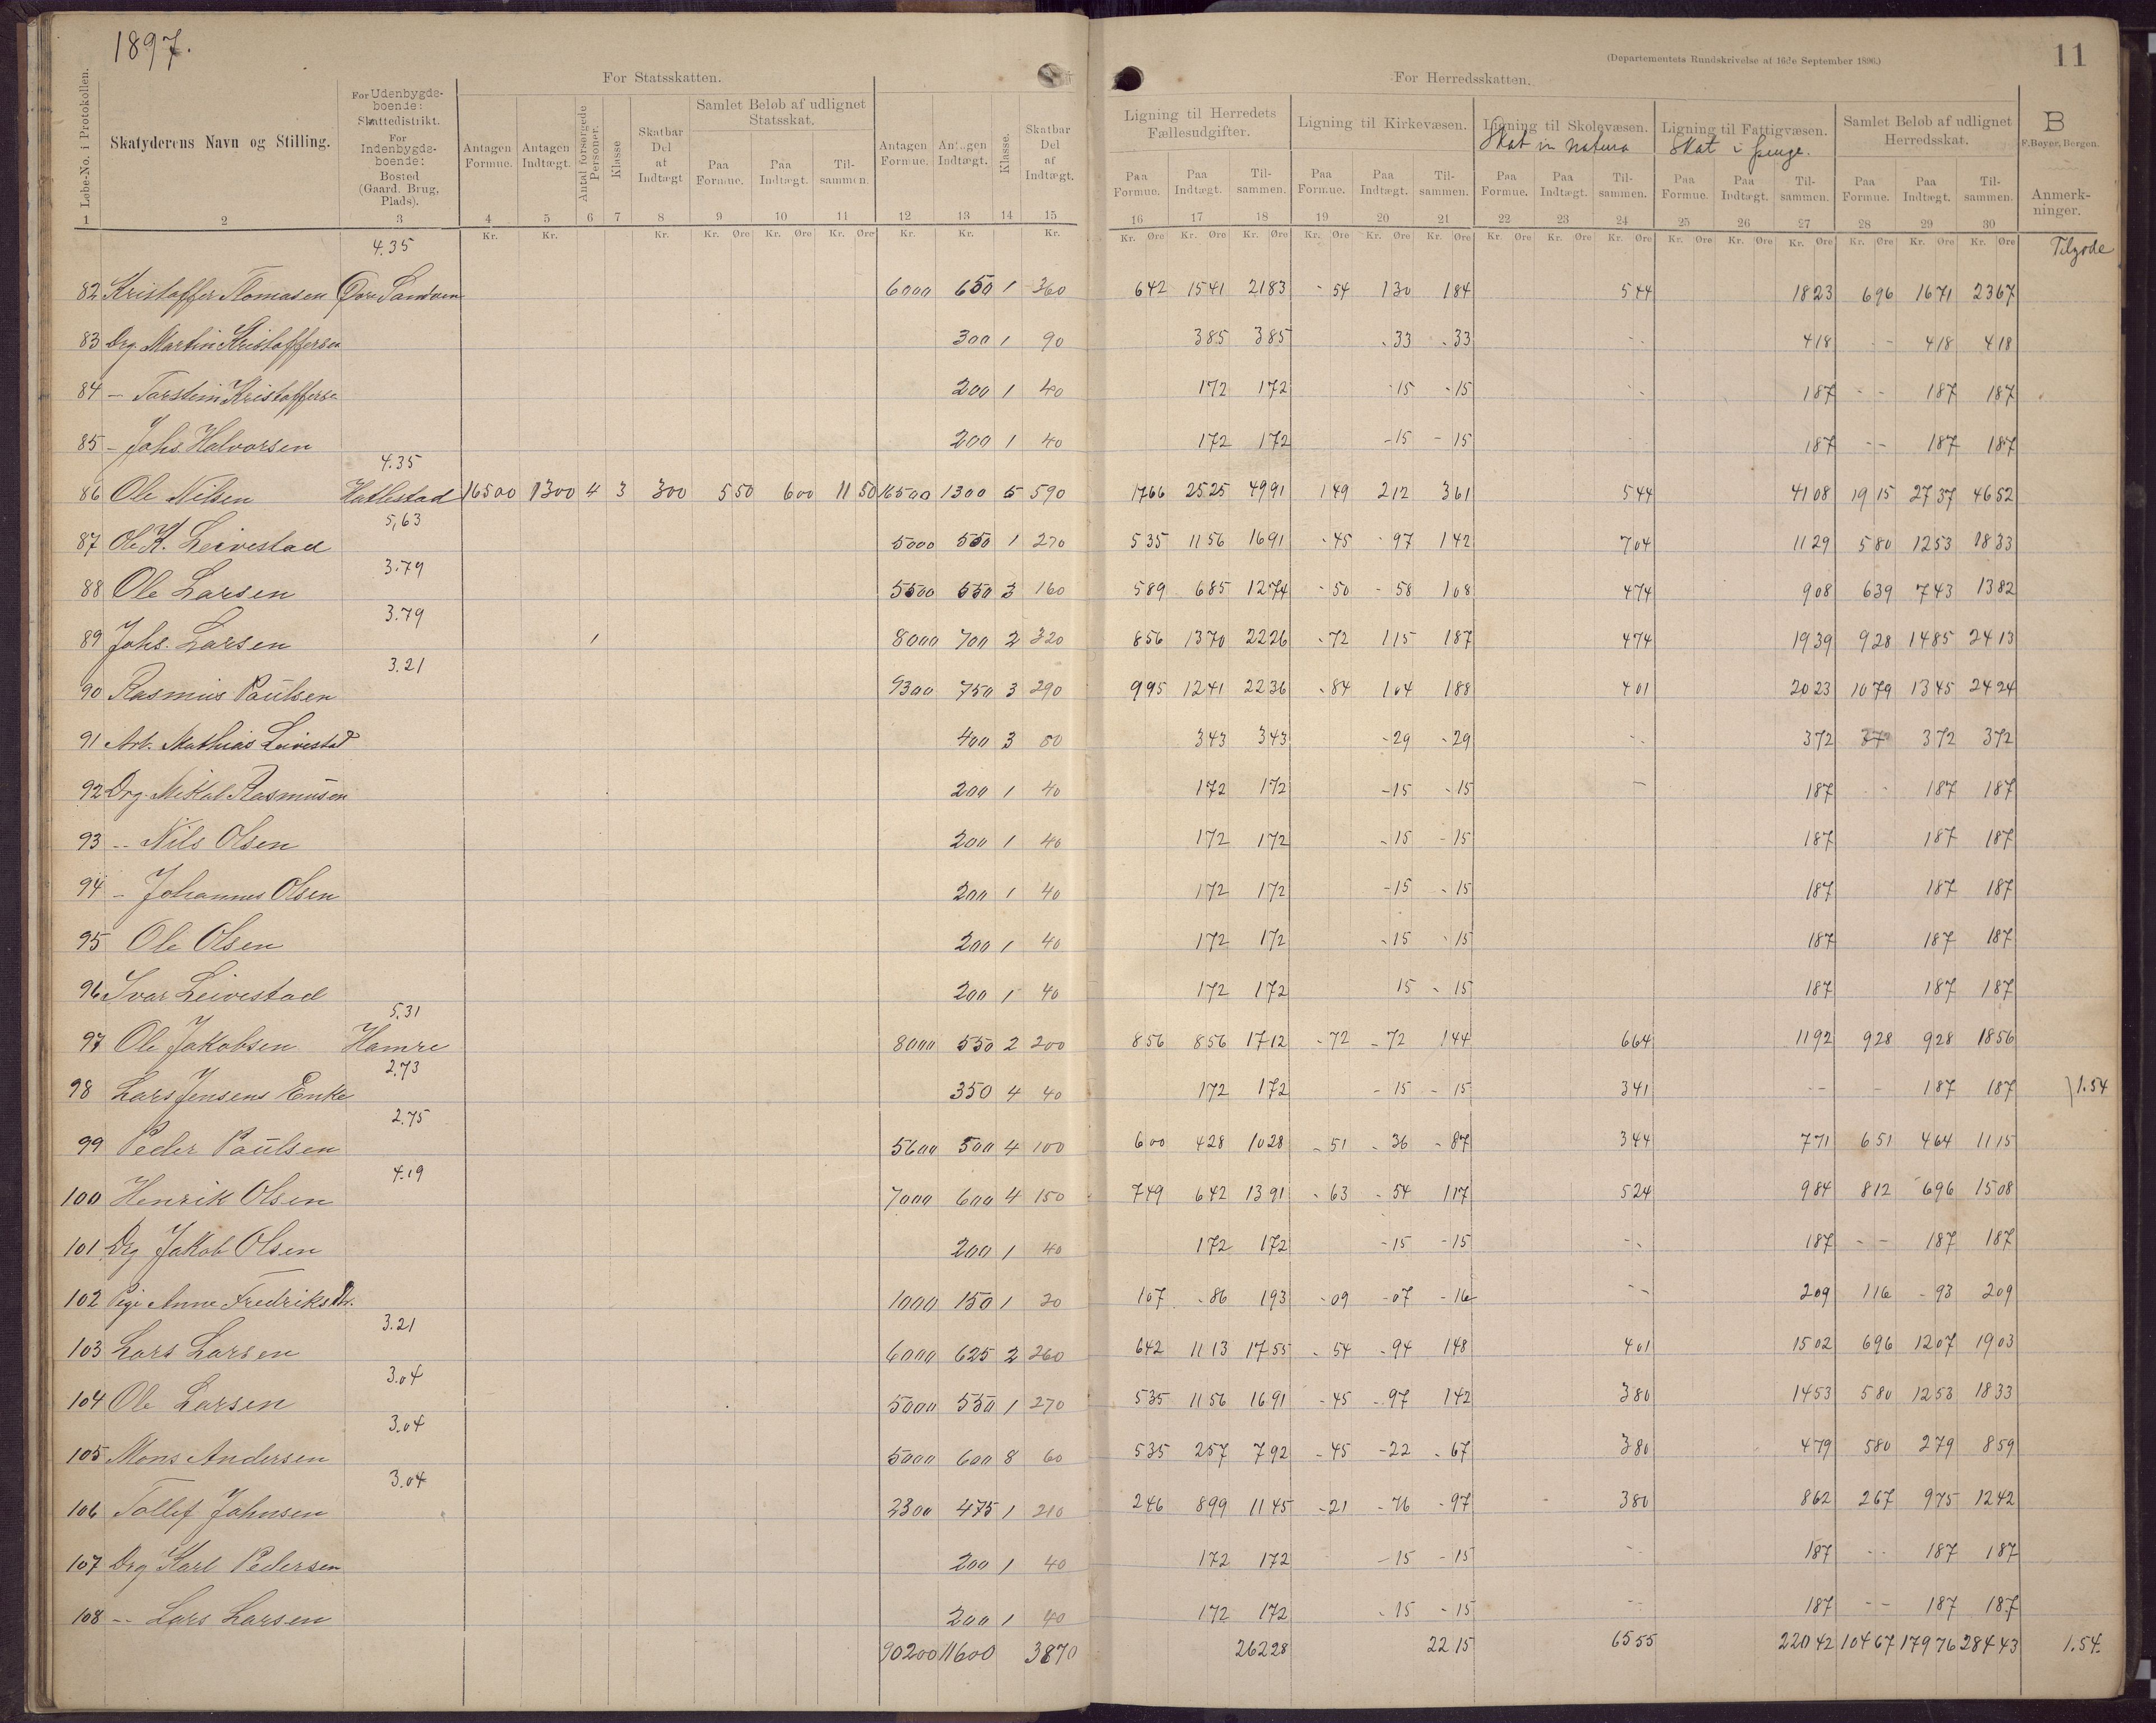 1897.
11
(Departementets Rundskrivelse af 16de September 1896.)
For Statsskatten. For Herredsskatten.
Løbe-No. i Protokollen.
Skatyderens Navn og Stilling.
For Udenbygdeboende: Skattedistrikt. For Indenbygdeboende: Bosted (Gaard, Brug, Plads).
Antagen Formue. Antagen Indtægt. Antal forsørgede Personer. Klasse Skatbar Del af Indtægt
Samlet Beløb af udlignet Statsskat. Paa Formue. Paa Indtægt. Tilsammen.
Antagen Formue. Antagen Indtægt. Klasse. Skatbar Del af Indtægt.
Ligning til Herredets Fællesudgifter. Paa Formue. Paa Indtægt. Tilsammen.
Ligning til Kirkevæsen. Paa Formue. Paa Indtægt. Tilsammen.
Ligning til Skolevæsen. Skat in natura Paa Formue. Paa Indtægt. Tilsammen.
Ligning til Fattigvæsen. Skat i penge. Paa Formue. Paa Indtægt. Tilsammen.
Samlet Beløb af udlignet Herredsskat. Paa Formue. Paa Indtægt. Tilsammen.
B
F. Beyer, Bergen.
Anmerkninger.
1 2 3 4 5 6 7 8 9 10 11 12 13 14 15 16 17 18 19 20 21 22 23 24 25 26 27 28 29 30
Kr. Kr. Kr. Kr. Øre Kr. Øre Kr. Øre Kr. Kr. Kr. Kr. Øre Kr. Øre Kr. Øre Kr. Øre Kr. Øre Kr. Øre Kr. Øre Kr. Øre Kr. Øre Kr. Øre Kr. Øre Kr. Øre Kr. Øre Kr. Øre Kr. Øre
4.35 Tilgode
82 Kristoffer Tomasen Øvre Sandven 6000 650 1 360 642 1541 2183 - 54 130 184 544 1823 696 1671 2367
83 Drg. Martin Kristoffersen 300 1 90 385 385 - 33 - 33 -- 418 -- 418 418
84 - Torstein Kristofferse 200 1 40 172 172 - 15 - 15 - 187 -- 187 187
85 - Johs. Halvorsen 200 1 40 172 172 - 15 - 15 187 -- 187 187
4.35
86 Ole Nilsen Hatlestad 16500 1300 4 3 300 5 50 6 00 11 50 16500 1300 5 590 1766 2525 4991 149 212 361 544 4108 1915 2737 4652
5,63
87 Ole K. Leivestad 5000 550 1 270 535 1156 1691 - 45 - 97 142 704 1129 580 1253 1833
3.79
88 Ole Larsen 5500 550 3 160 589 685 1274 - 50 - 58 108 474 908 639 743 1382
3.79
89 Johs. Larsen 8000 700 2 320 856 1370 2226 - 72 115 187 474 1939 928 1485 2413
3.21
90 Rasmus Paulsen 9300 750 3 290 995 1241 2236 - 84 104 188 401 2023 1079 1345 2424
91 Arb. Mathias Leivestad 400 3 80 343 343 - 29 - 29 -- 372 372 372
92 Drg. Mikal Rasmusen 200 1 40 172 172 - 15 - 15 - 187 - 187 187
93 -- Nils Olsen 200 1 40 172 172 - 15 - 15 187 187 187
94 - Johannes Olsen 200 1 40 172 172 - 15 - 15 187 187 187
95 Ole Olsen 200 1 40 172 172 - 15 - 15 187 187 187
96 Ivar Leivestad 200 1 40 172 172 15 - 15 187 187 187
5.31
97 Ole Jakobsen Hamre 8000 550 2 200 856 856 1712 - 72 - 72 144 664 1192 928 928 1856
2.73
98 Lars Jensens Enke 350 4 40 172 172 - 15 - 15 341 -- - 187 187 1.54
2.75
99 Peder Paulsen 5600 500 4 100 600 428 1028 - 51 - 36 - 87 344 771 651 464 1115
4.19
100 Henrik Olsen 7000 600 4 150 749 642 1391 - 63 - 54 117 524 984 812 696 1508
101 Drg Jakob Olsen 200 1 40 172 172 - 15 - 15 -- 187 -- 187 187
102 Pige Anne Fredriksdtr. 1000 150 1 20 107 - 86 193 - 09 - 07 - 16 -- 209 116 - 93 209
3.21
103 Lars Larsen 6000 625 2 260 642 1113 1755 - 54 - 94 148 401 1502 696 1207 1903
3.04
104 Ole Larsen 5000 550 1 270 535 1156 1691 - 45 - 97 142 380 1453 580 1253 1833
3.04
105 Mons Andersen 5000 600 8 60 535 257 792 - 45 - 22 - 67 380 479 580 279 859
3.04
106 Tollef Johnsen 2300 475 1 210 246 899 1145 - 21 - 76 - 97 380 862 267 975 1242
107 Drg Karl Pedersen 200 1 40 172 172 - 15 - 15 -- 187 -- 187 187
108 -- Lars Larsen 200 1 40 172 172 - 15 - 15 -- 187 -- 187 187
90200 11600 3870 26228 2215 6555 22042 10467 17976 28443 1.54.